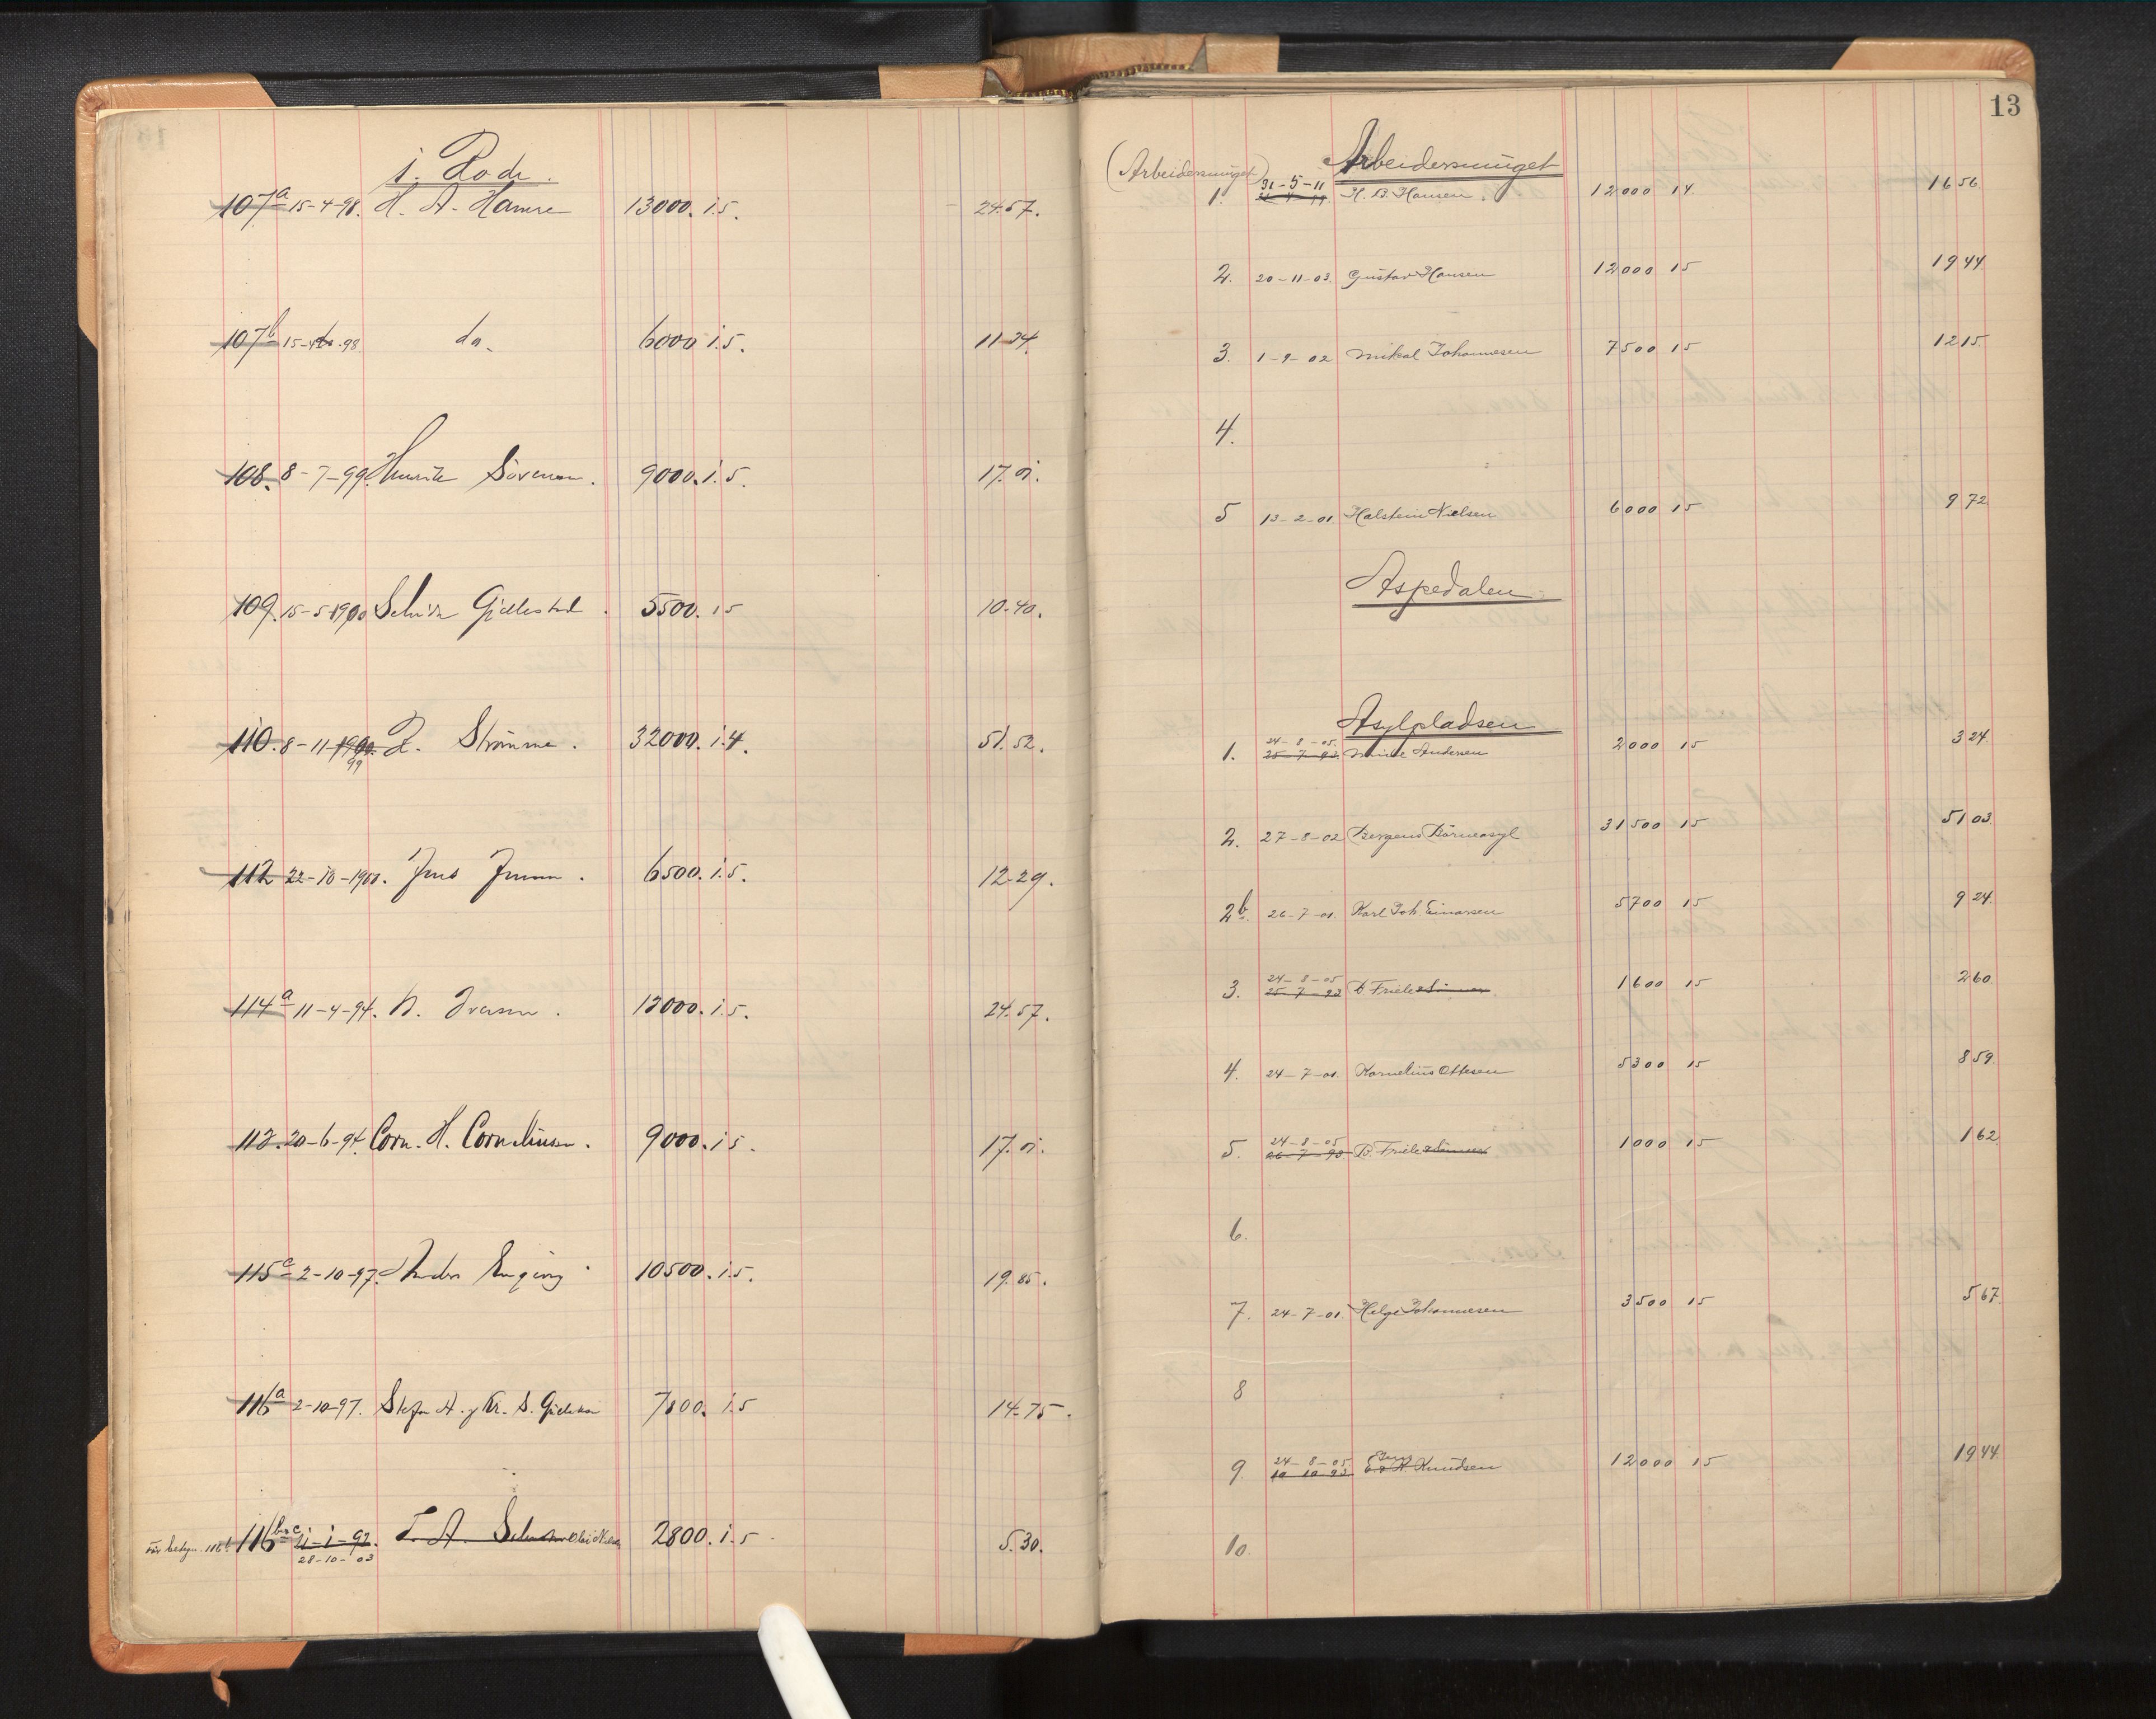 1. Rode.
107a 15-4-98. H. A. Hamre 13000. 1.5. 24.57.
107b 15-4-98 do. 6000 1.5. 11.34.
108. 8-7-99. Sörensen. 9000. 1.5. 17.01.
109. 15-5-1900 Gjellestad. 5500. 15 10.40.
110. 8-11-1900 99 R. Strömme. 32000. 1.4. 51.52.
112 22-10-1900. Jens Jensen. 6500. 1.5. 12.29.
114a 11-4-94. N. Iversen. 13000. 1.5. 24.57.
113. 20-6-94. Corn. H. Corneliussen. 9000. 15. 17.01.
115c 2-10-97. 10500. 1.5. 19.85.
116a 2-10-97. A. Kr. S. 7800. 1.5 14.75.
116b 28-10-03 2800. 1.5 5.30.
13
(Arbeidersmuget) Arbeidersmuget
31-5-11
1. H. B. Hansen. 12000 14 16 56
2. 20-11-03. Gustav Hansen 12000 15 19 44
3. 1-9-02 Mikal Johannesen 7500 15 12 15
4.
5 13-2-01. Halstein Nielsen 6000 15 9 72
Aspedalen.
Asylpladsen
24-8-05.
1. 25-7-93 Andersen 2000 15 3 24
2. 27-8-02 Bergens Börneasyl 31500 15 51 03
2b. 26-7-01. Karl Joh. Einarsen 5700 15 9 24
24-8-05
3. 25-7-93 B Friele 1600 15 2 60
4. 24-7-01. Kornelius Ottesen 5300 15 8 59
24-8-05
5. 26-7-93 B. Friele 1000 15 1 62
6.
7. 24-7-01. Helge Johannesen 3500 15 5 67
8
24-8-05
9 10 10 93 Knudsen 12000 15 19 44
10